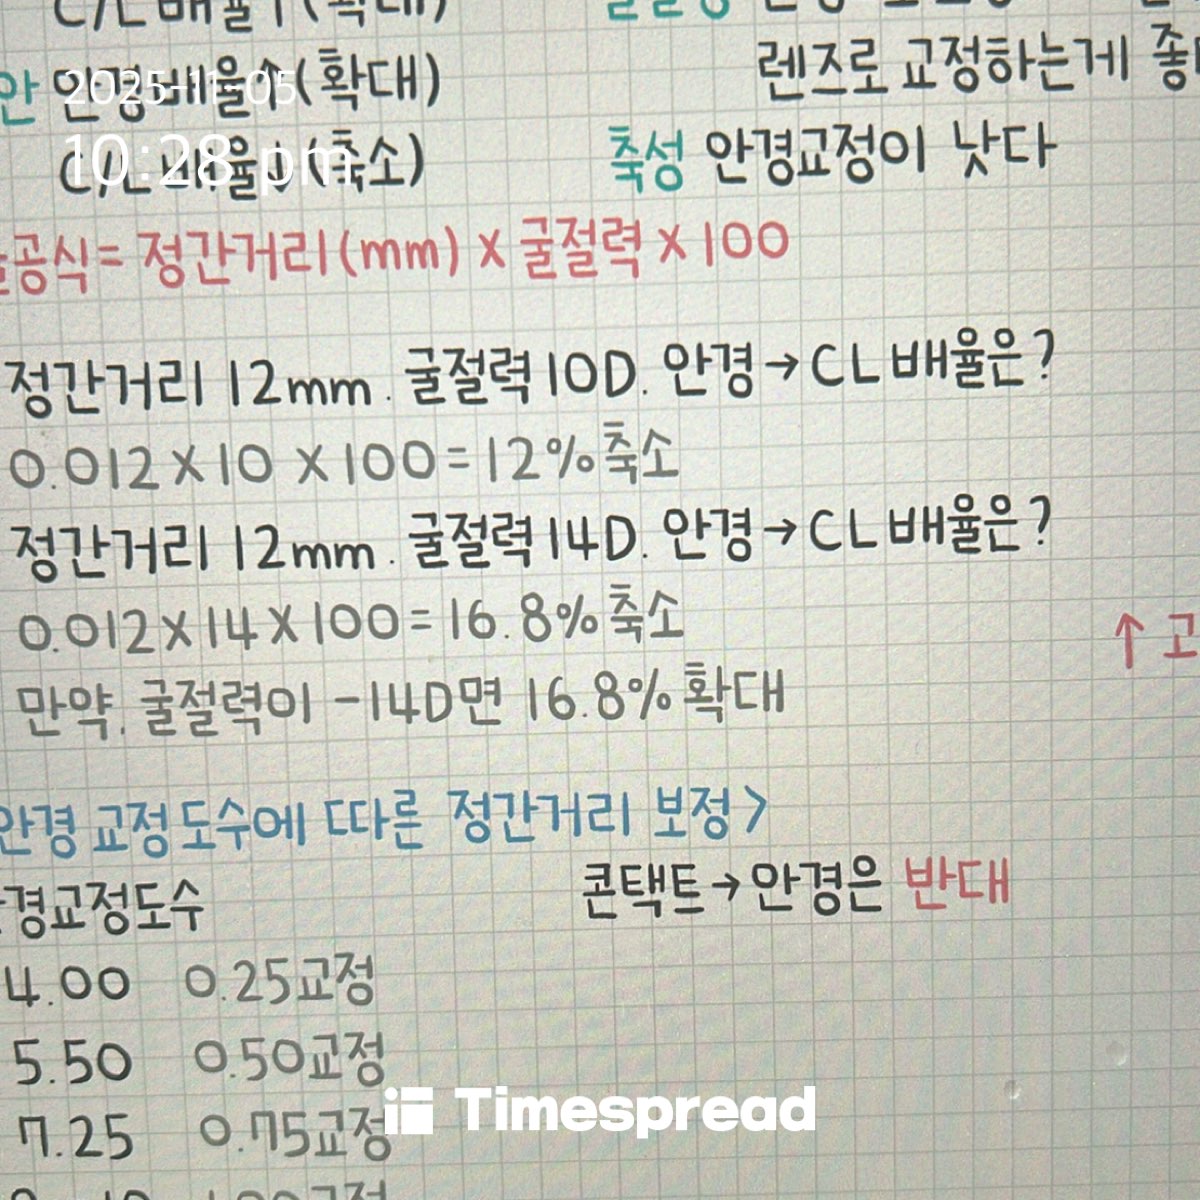 C/L 배율↑(확대)
안 안경배율↓(확대) 렌즈로 교정하는게
2025-11-05
10:28 pm
C/L 배율↓(축소) 축성 안경교정이 낫다
공식= 정간거리(mm) X 굴절력 X 100
정간거리 12mm. 굴절력 10D. 안경→CL 배율은?
0.012 X 10 X 100 = 12% 축소
정간거리 12mm. 굴절력 14D. 안경→CL 배율은?
0.012 X 14 X 100 = 16.8% 축소
↑ 고
만약. 굴절력이 -14D면 16.8% 확대
안경 교정도수에 따른 정간거리 보정>
경교정도수 콘택트→안경은 반대
4.00 0.25교정
5.50 0.50교정
7.25 0.75교정
Timespread